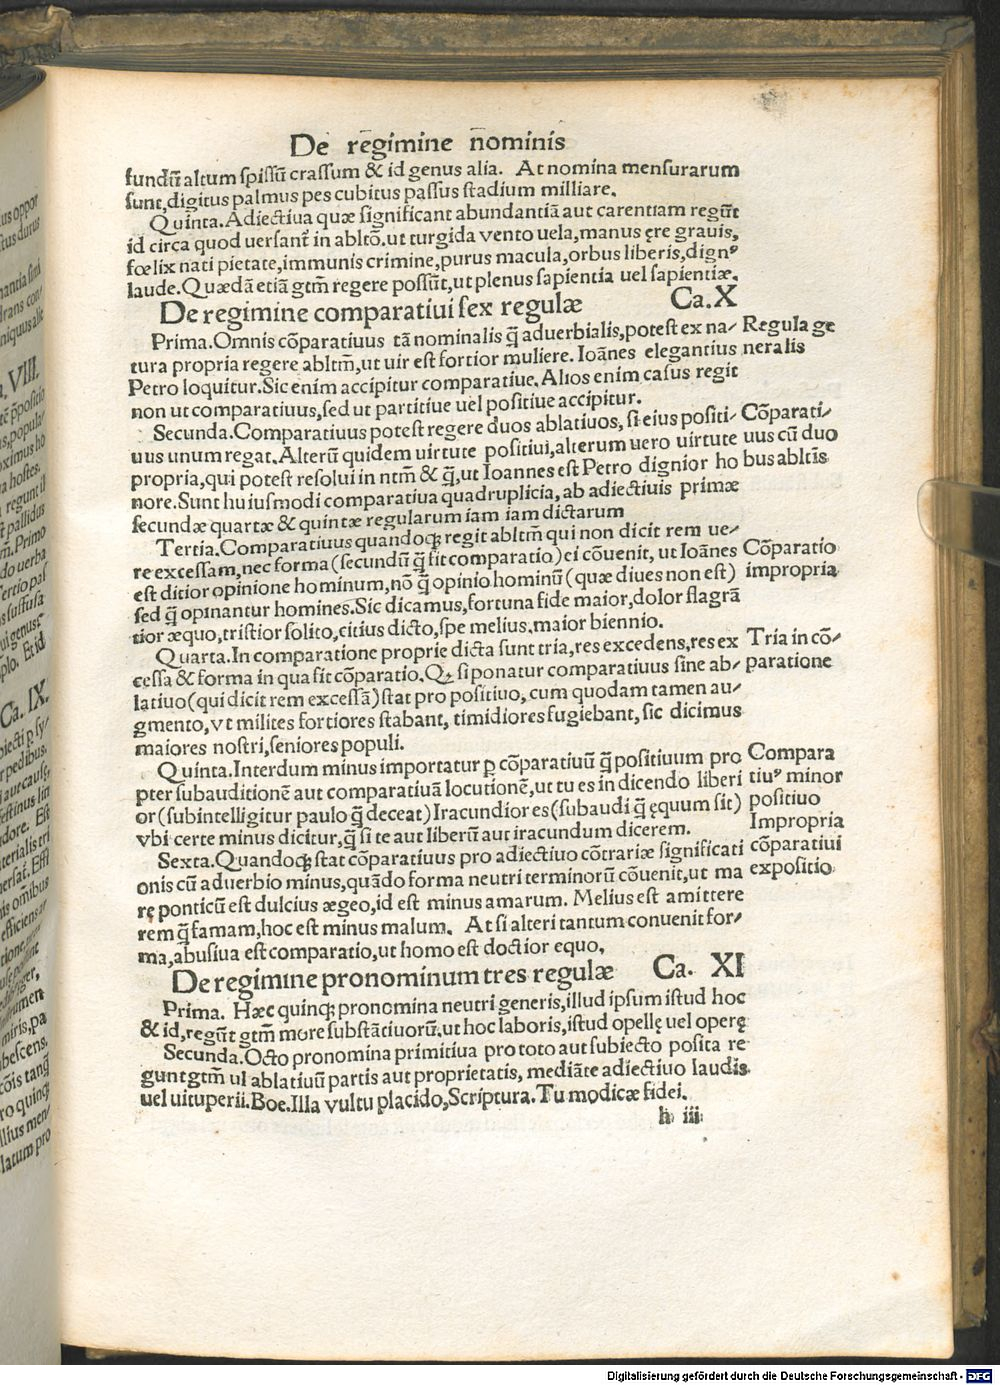 De regĩmine nomĩnis
fundũ altum spissũ crassum & id genus alia. At nomina mensurarum
sunt, digitus palmus pes cubitus passus stadium milliare.
Quinta. Adiectiua quæ significant abundantiã aut carentiam regũt
id circa quod uersant᷑ in abltõ. ut turgida vento uela, manus ęre grauis,
fœlix nati pietate, immunis crimine, purus macula, orbus liberis, dignꝰ
laude. Quædã etiã gtm̃ regere possũt, ut plenus sapientia uel sapientiæ.
De regimine comparatiui sex regulæ Ca. X
Prima. Omnis cõparatiuus tã nominalis q̃ aduerbialis, potest ex na⸗ Regula ge
tura propria regere abltm̃, ut uir est fortior muliere. Ioãnes elegantius neralis
Petro loquitur. Sic enim accipitur comparatiue. Alios enim casus regit
non ut comparatiuus, sed ut partitiue uel positiue accipitur.
Secunda. Comparatiuus potest regere duos ablatiuos, si eius positi⸗ Cõparati⸗
uus unum regat. Alterũ quidem uirtute positiui, alterum uero uirtute uus cũ duo
propria, qui potest resolui in ntm̃ & q̃, ut Ioannes est Petro dignior ho bus abltĩs
nore. Sunt huiusmodi comparatiua quadruplicia, ab adiectiuis primæ
secundæ quartæ & quintæ regularum iam iam dictarum
Tertia. Comparatiuus quandoqꝫ regit abltm̃ qui non dicit rem ue⸗
re excessam, nec forma (secundũ q̃ fit comparatio) ei cõuenit, ut Ioãnes Cõparatio
est ditior opinione hominum, nõ q̃ opinio hominũ (quæ diues non est) impropria
sed q̃ opinantur homines. Sic dicamus, fortuna fide maior, dolor flagrã
tior æquo, tristior solito, citius dicto, spe melius, maior biennio.
Quarta. In comparatione proprie dicta sunt tria, res excedens, res ex Tria in cõ⸗
cessa & forma in qua fit cõparatio. Qꝫ si ponatur comparatiuus sine ab⸗ paratione
latiuo (qui dicit rem excessã) stat pro positiuo, cum quodam tamen au⸗
gmento, vt milites fortiores stabant, timidiores fugiebant, sic dicimus
maiores nostri, seniores populi.
Quinta. Interdum minus importatur ꝑ cõparatiuũ q̃ positiuum pro Compara
pter subauditionẽ aut comparatiuã locutionẽ, ut tu es in dicendo liberi tiuꝰ minor
or (subintelligitur paulo q̃ deceat) Iracundior es (subaudi q̃ ęquum sit) positiuo
vbi certe minus dicitur, q̃ si te aut liberũ aut iracundum dicerem. Impropria
Sexta. Quandoqꝫ stat cõparatiuus pro adiectiuo cõtrariæ significati cõparatiui
onis cũ aduerbio minus, quãdo forma neutri terminorũ cõuenit, ut ma expositio
rę ponticũ est dulcius ægeo, id est minus amarum. Melius est amittere
rem q̃ famam, hoc est minus malum. At si alteri tantum conuenit for⸗
ma, abusiua est comparatio, ut homo est doctior equo.
De regimine pronominum tres regulæ Ca. XI
Prima. Hæc quinqꝫ pronomina neutri generis, illud ipsum istud hoc
& id, regũt gtm̃ more substãtiuorũ. ut hoc laboris, istud opellę uel operę
Secunda. Octo pronomina primitiua pro toto aut subiecto posita re
gunt gtm̃ ul ablatiuũ partis aut proprietatis, mediãte adiectiuo laudis
uel uituperii. Boe. Illa vultu placido, Scriptura. Tu modicæ fidei.
h iii
Digitalisierung gefördert durch die Deutsche Forschungsgemeinschaft - DFG